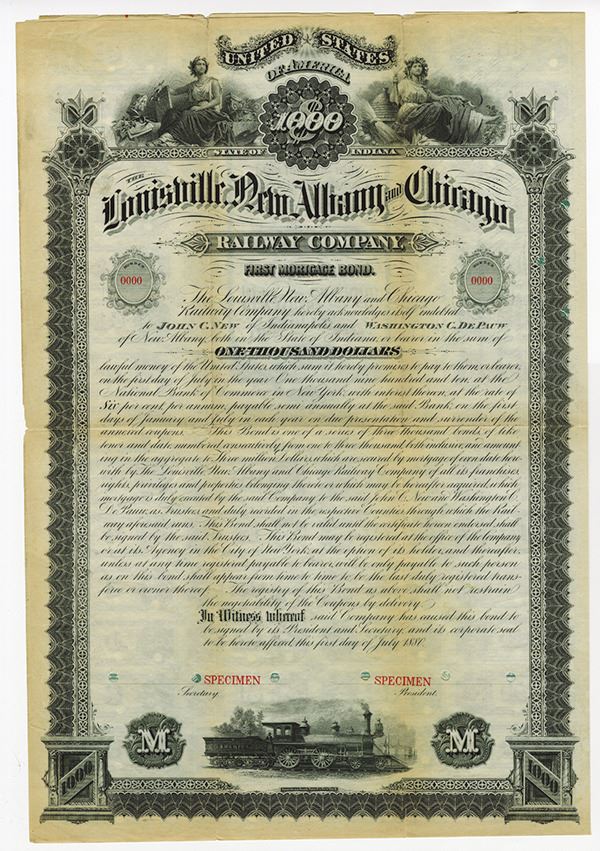 UNITED STATES
OF AMERICA
$1000
STATE OF INDIANA
THE
Louisville, New Albany and Chicago
RAILWAY COMPANY
FIRST MORTGAGE BOND.
0000
0000
The Louisville New Albany and Chicago
Railway Company hereby acknowledges itself indebted
to JOHN C. NEW of Indianapolis and WASHINGTON C. DE PAUW
of New Albany, both in the State of Indiana or bearer, in the sum of
ONE THOUSAND DOLLARS
lawful money of the United States, which sum it hereby promises to pay to them, or bearer,
on the first day of July in the year One thousand nine hundred and ten, at the
National Bank of Commerce in New York, with interest thereon, at the rate of
Six per cent. per annum, payable semi annually at the said Bank, on the first
days of January and July in each year on due presentation and surrender of the
annexed coupons. This Bond is one of a series of Three thousand bonds, of like
tenor and date numbered consecutively from one to three thousand both inclusive, and amount-
ing in the aggregate to Three million Dollars, which are secured by mortgage of even date here-
with by The Louisville New Albany and Chicago Railway Company of all its franchises
rights, privileges and properties belonging thereto or which may be hereafter acquired, which
mortgage is duly executed by the said Company to the said John C. New and Washington C.
De Pauw, as Trustees, and duly recorded in the respective Counties through which the Rail-
way aforesaid runs. This Bond shall not be valid until the certificate hereon endorsed shall
be signed by the said Trustees. This Bond may be registered at the office of the Company
or at its Agency in the City of New York, at the option of its holder, and thereafter,
unless at any time registered payable to bearer, will be only payable to such person
as on this bond shall appear from time to time to be the last duly registered trans-
feree or owner thereof. The registry of this Bond as above shall not restrain
the negotiability of the Coupons by delivery.
In Witness whereof said Company has caused this bond to
be signed by its President and Secretary, and its corporate seal
to be hereto affixed, this first day of July 1880.
SPECIMEN
SPECIMEN
Secretary.
President.
M
M
1000
1000